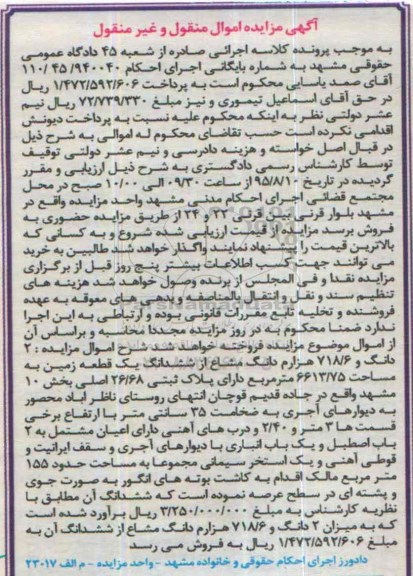 آگهی مزایده اموال منقول و غیر منقول
به موجب پرونده کلاسه اجرائی صادره از شعبه ۴۵ دادگاه عمومی
حقوقی مشهد به شماره بایگانی اجرای احکام ۹۴۰۰۴۰/ ۴۵ /۱۱۰
آقای صمد یاسایی محکوم است به پرداخت ۱/۴۷۲/۵۹۲/۶۰۶ ریال
در حق آقای اسماعیل تیموری و نیز مبلغ ۷۲/۷۳۹/۳۳۰ ریال نیم
عشر دولتی نظر به اینکه محکوم علیه نسبت به پرداخت دیونش
اقدامی نکرده است حسب تقاضای محکوم له اموالی به شرح ذیل
در قبال اصل خواسته و هزینه دادرسی و نیم عشر دولتی توقیف
توسط کارشناس رسمی دادگستری به شرح ذیل ارزیابی و مقرر
گردیده در تاریخ ۹۵/۸/۱۰ از ساعت ۰۹/۳۰ الی ۱۰/۰۰ صبح در محل
مجتمع قضائی اجرای احکام مدنی مشهد واحد مزایده واقع در
مشهد بلوار قرنی بین قرنی ۲۲ و ۲۴ از طریق مزایده حضوری به
فروش برسد مزایده از قیمت ارزیابی شده شروع و به کسانی که
بالاترین قیمت را پیشنهاد نمایند واگذار خواهد شد طالبین به خرید
می توانند جهت کسب اطلاعات بیشتر پنج روز قبل از برگزاری
مزایده نقدا و فی المجلس از برنده وصول خواهد شد هزینه های
تنظیم سند و نقل و انتقال بالمناصفه و بدهی های معوقه به عهده
فروشنده و تخلیه تابع مقررات قانونی بوده و ارتباطی به این اجرا
ندارد ضمنا محکوم به در روز مزایده مجددا محاسبه و براساس آن
از اموال موضوع مزایده فروخته خواهد شد. شرح اموال مزایده : ۲
دانگ و ۷۱۸/۶ هزارم دانگ مشاع از ششدانگ یک قطعه زمین به
مساحت ۶۶۱۳/۷۵ مترمربع دارای پلاک ثبتی ۲۶/۶۸ اصلی بخش ۱۰
مشهد واقع در جاده قدیم قوچان انتهای روستای ناظر اباد محصور
به دیوارهای آجری به ضخامت ۳۵ سانتی متر با ارتفاع برخی
قسمت ها ۳ متر و ۲/۴۰ و درب های آهنی دارای اعیان مشتمل به ۲
باب اصطبل و یک باب انباری با دیوارهای آجری و سقف ایرانیت و
قوطی آهنی و یک استخر سیمانی مجموعا به مساحت حدود ۱۵۵
متر مربع مالک اقدام به کاشت بوته های انگور به صورت جوی
و پشته ای در سطح عرصه نموده است که ششدانگ آن مطابق با
نظریه کارشناس به مبلغ ۳/۲۵۰/۰۰۰/۰۰۰ ریال برآورد شده است
که به میزان ۲ دانگ و ۷۱۸/۶ هزارم دانگ مشاع از ششدانگ آن به
مبلغ ۱/۴۷۲/۵۹۲/۶۰۶ ریال به فروش می رسد
دادورز اجرای احکام حقوقی و خانواده مشهد - واحد مزایده - م الف ۲۳۰۱۷